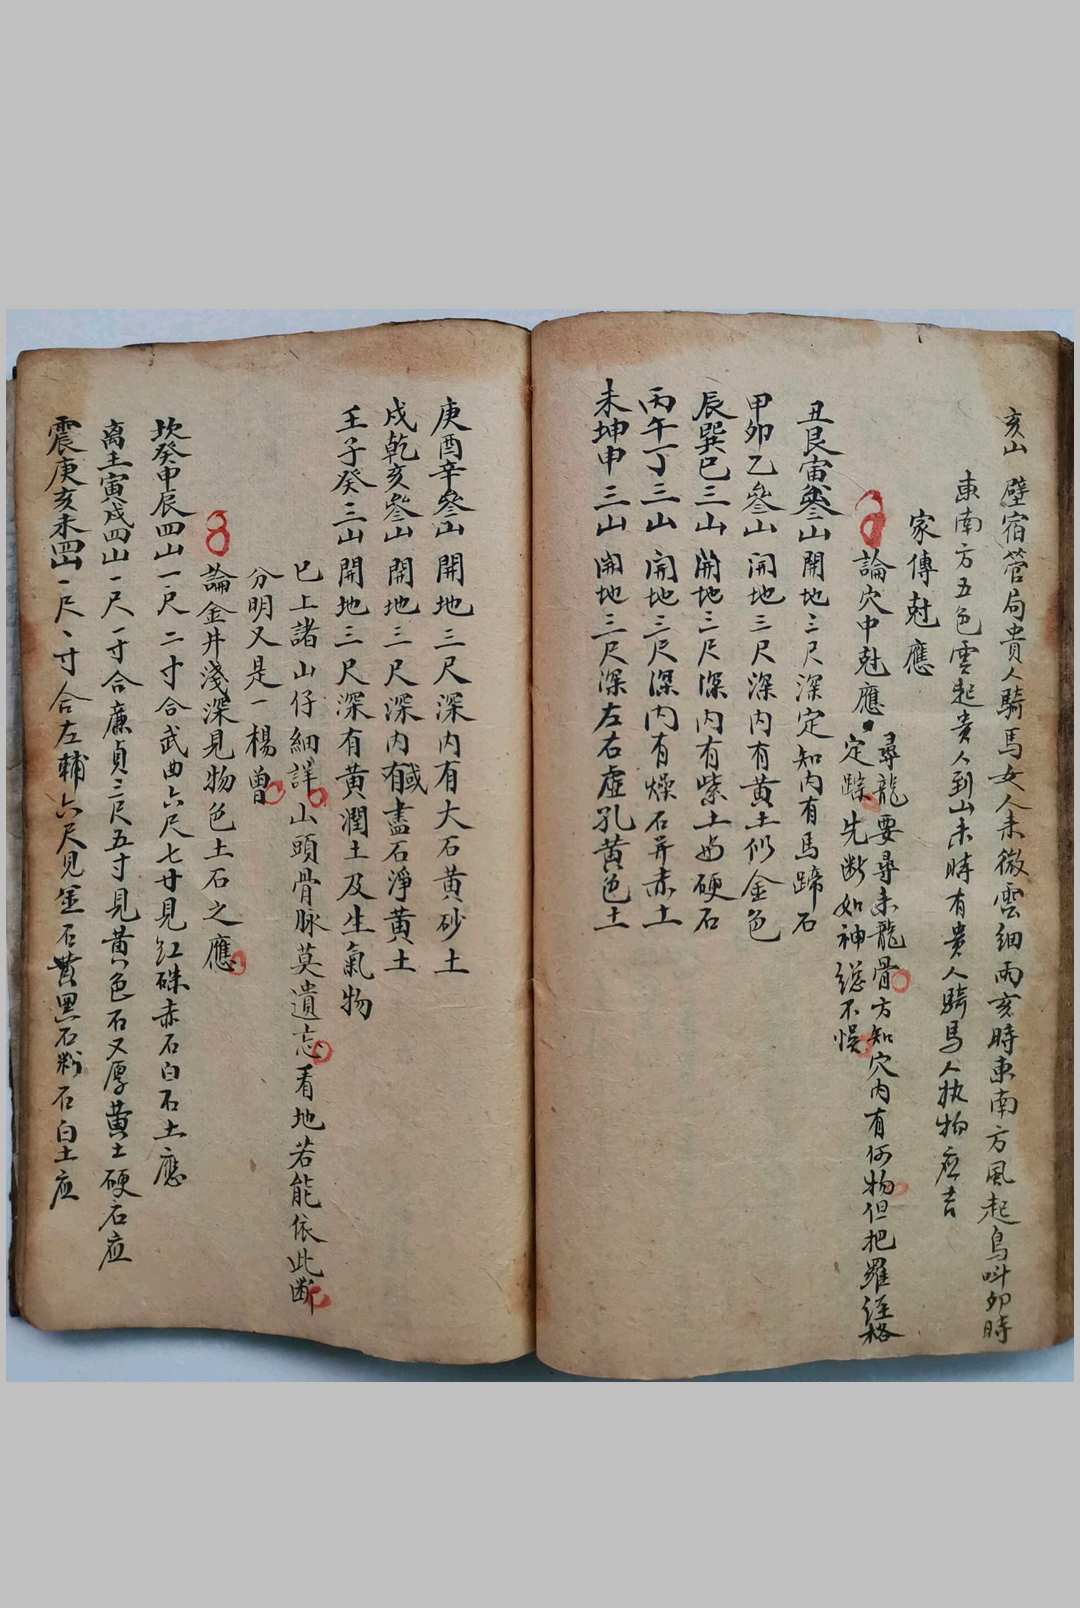 亥山 壁宿管局貴人騎馬女人來微雲細雨亥時東南方風起鳥呌卯時
東南方五色雲起貴人到山未時有貴人騎馬人执物应吉
家傳尅應
論穴中尅應
尋龍要尋來龍骨方知穴内有何物但把羅經格
定踪先断如神縂不悞
丑艮寅叁山開地三尺深定知内有馬蹄石
甲卯乙叄山開地三尺深内有黄土似金色
辰巽巳三山開地三尺深内有紫土硬石
丙午丁三山開地三尺深内有燥石并赤土
未坤申三山開地三尺深左右虚孔黄色土
庚酉辛叄山開地三尺深内有大石黄砂土
戌乾亥叄山開地三尺深内有或盡石淨黄土
壬子癸三山開地三尺深有黄潤土及生氣物
已上諸山仔細詳山頭骨脉莫遺忘看地若能依此断
分明又是一楊曾
論金井淺深見物色土石之應
坎癸申辰四山一尺二寸合武曲六尺七寸見红硃赤石白石土應
离壬寅戌四山一尺一寸合廉貞三尺五寸見黄色石又厚黄土硬石应
震庚亥未四山一尺、寸合左輔六尺見金石黄黑石粉石白土应